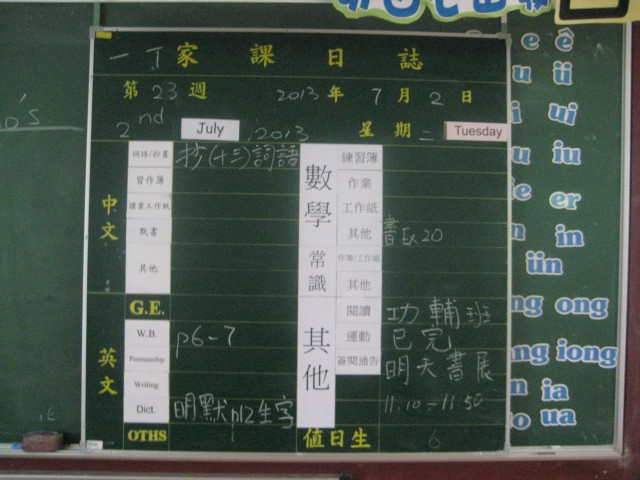 一丁家課日誌
第23週 2013年7月2日
2nd July, 2013 星期二 Tuesday
中文
詞語/抄書 抄(十三)詞語
習作簿
課業工作紙
默書
其他
G.E.
英文
W.B. p6-7
Penmanship
Writing
Dict. 明默p12生字
OTHS
數學
練習簿
作業
工作紙
其他 書Ex20
常識
作業/工作紙
其他
其他
閱讀 功輔班
運動 已完
簽閱通告 明天書展
11:10-11:50
值日生 6
e ê
u ü
i ui
u iu
ie er
n in
ün
ng ong
ang iong
n ia
o ua